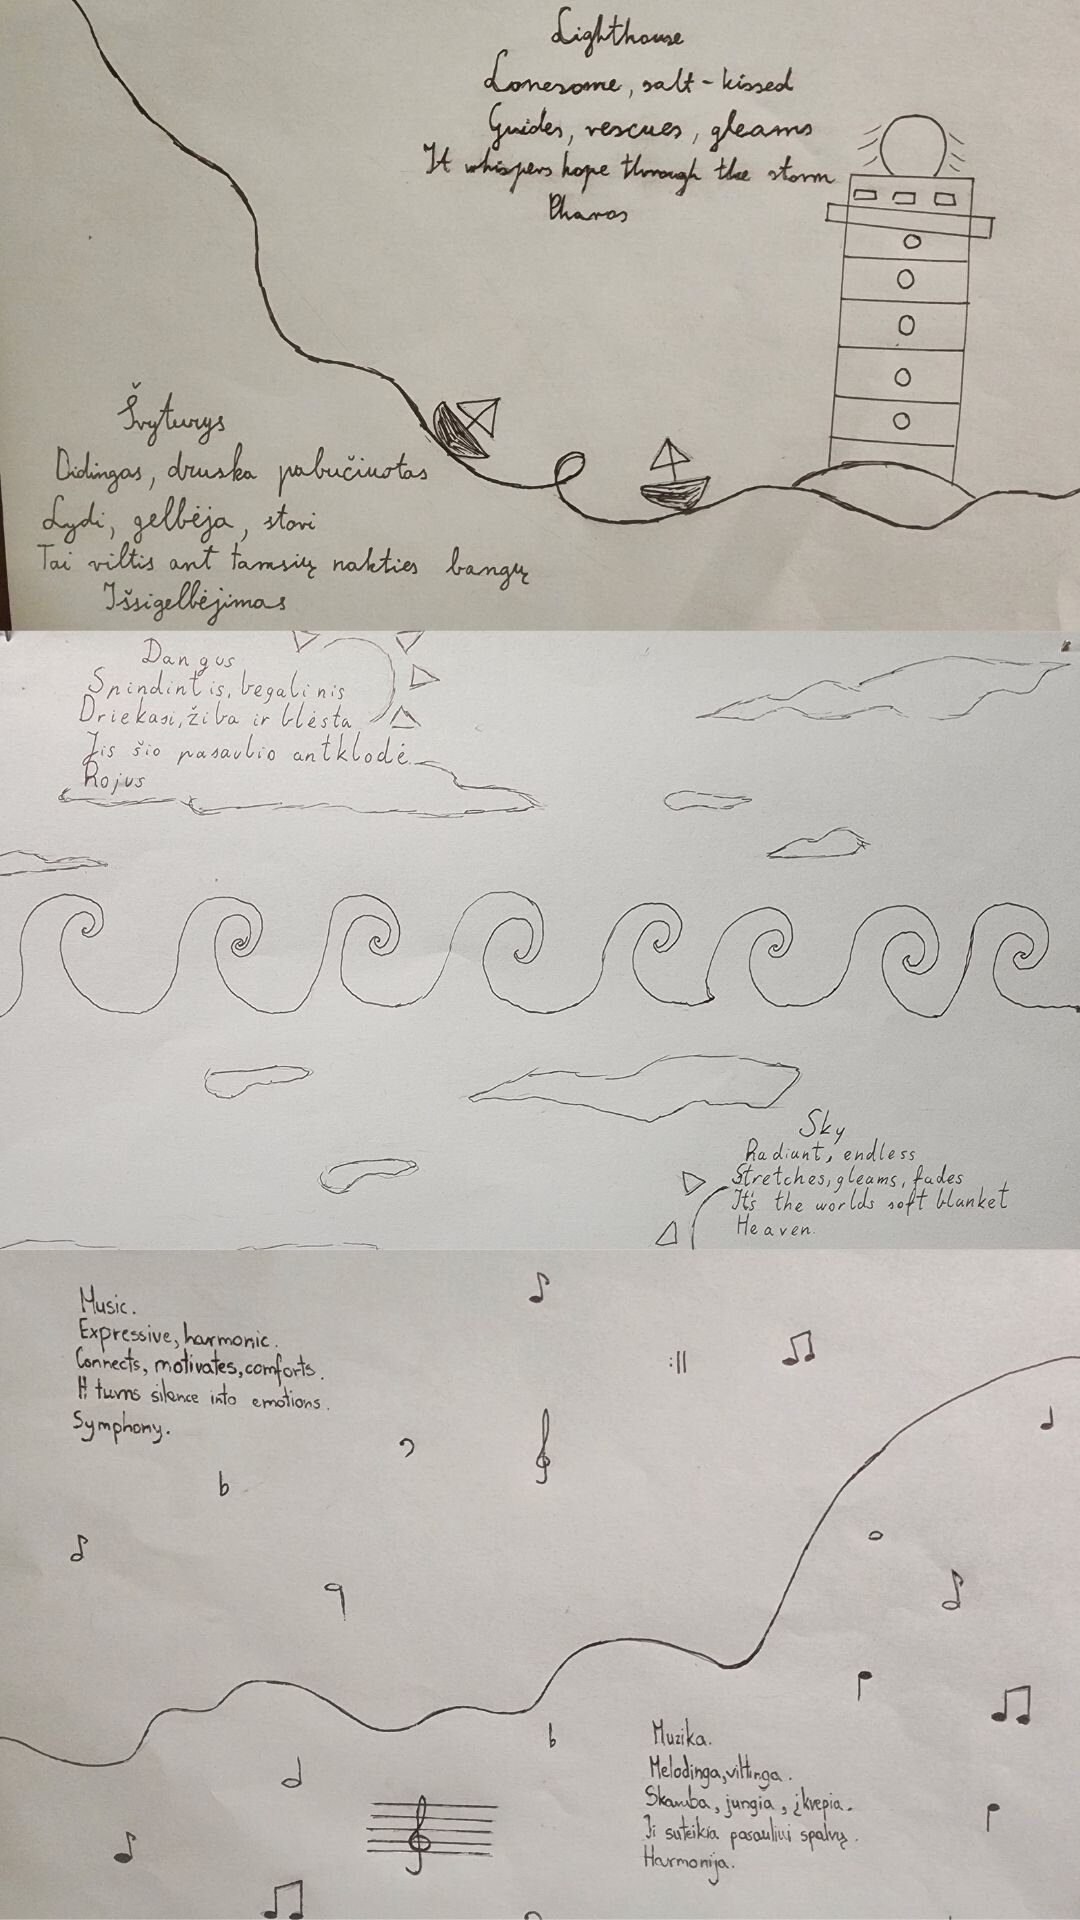 Lighthouse
Lonesome, salt-kissed
Guides, rescues, gleams
It whispers hope through the storm
Pharos
Švyturys
Didingas, druska pabučiuotas
Lydi, gelbėja, stovi
Tai viltis ant tamsių nakties bangų
Išsigelbėjimas
Dangus
Spindintis, begalinis
Driekasi, žiba ir blėsta
Jis šio pasaulio antklodė.
Rojus
Sky
Radiant, endless
Stretches, gleams, fades
It's the worlds soft blanket
Heaven.
Music.
Expressive, harmonic.
Connects, motivates, comforts.
It turns silence into emotions.
Symphony.
Muzika.
Melodinga, viltinga.
Skamba, jungia, įkvepia.
Ji suteikia pasauliui spalvų.
Harmonija.